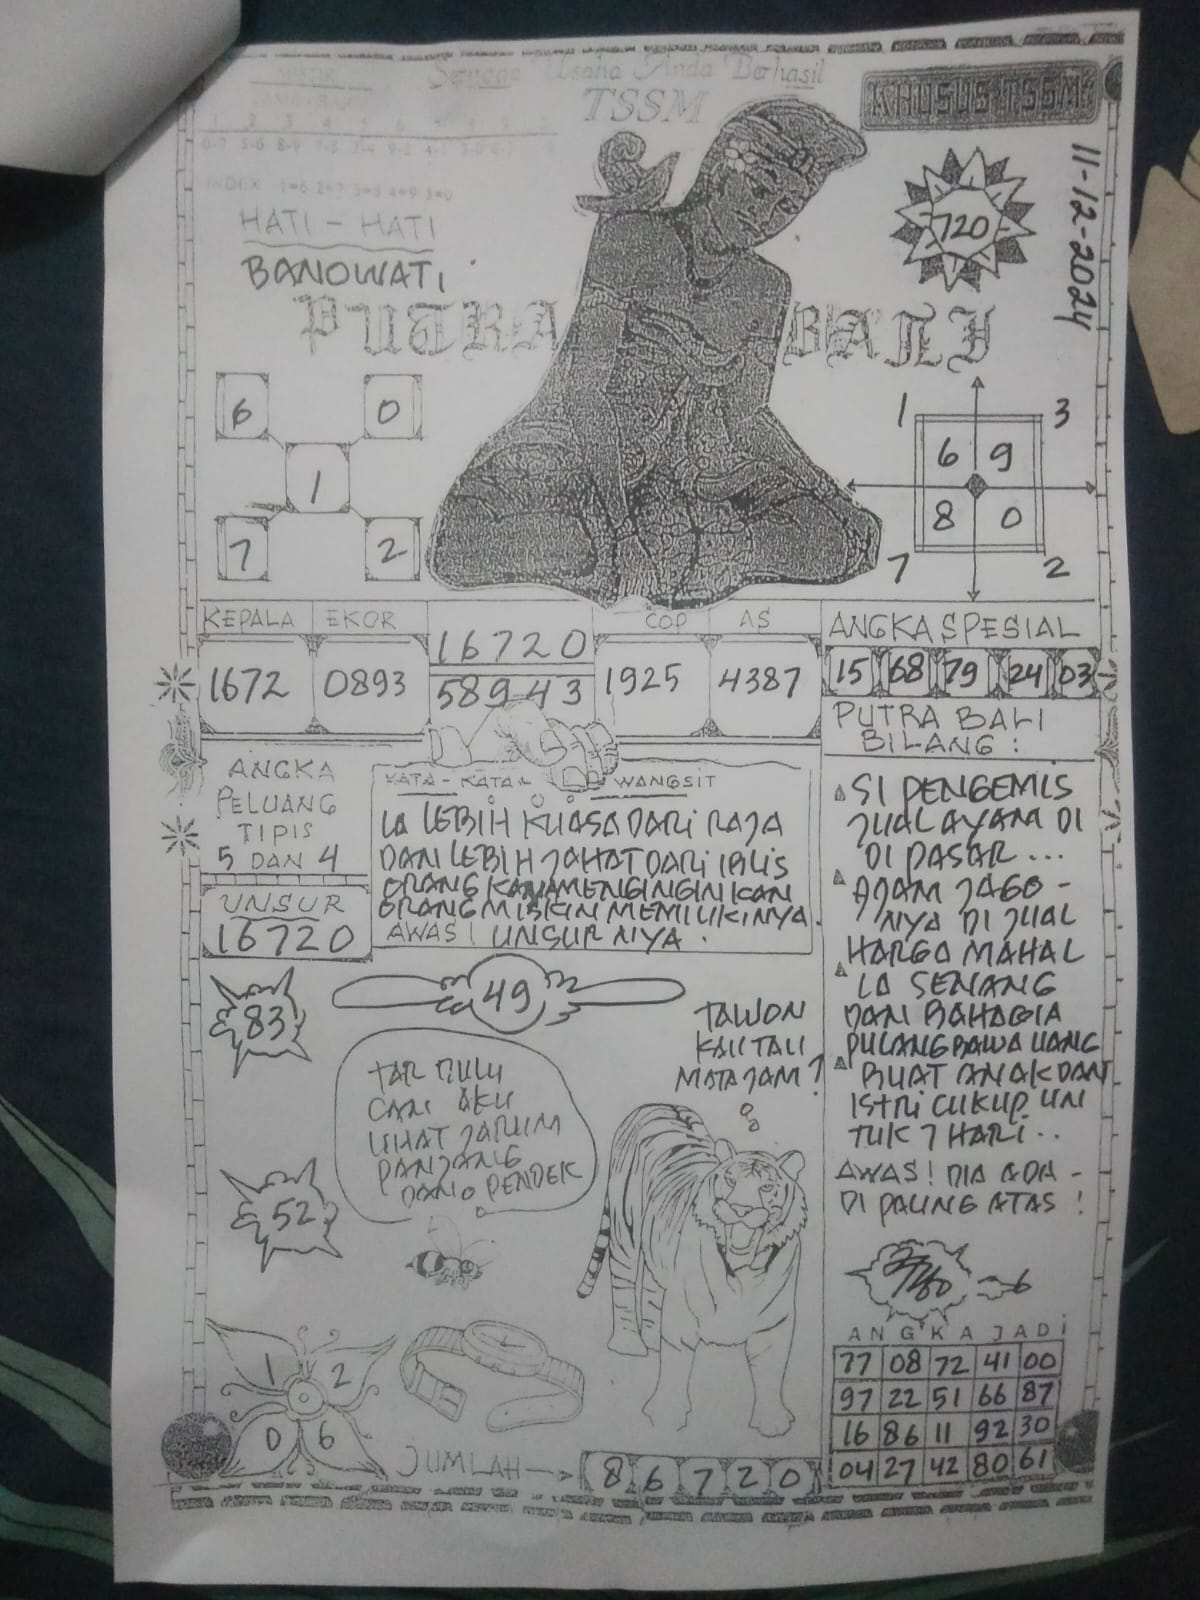 Semoga Usaha Anda Berhasil
TSSM
KHUSUS TSSM
11-12-2024
1 2 3 4 5 6 7 8 9
INDEX 1=6 2=7 3=8 4=9 5=0
HATI - HATI
BANOWATI
720
PUTRA BALI
6 0
1
7 2
1 3
6 9
8 0
7 2
KEPALA EKOR 16720 COP AS
1672 0893 58943 1925 4387
ANGKA SPESIAL
15 68 79 24 03
PUTRA BALI
BILANG :
ANGKA
PELUANG
TIPIS
5 DAN 4
UNSUR
16720
KATA - KATA WANGSIT
IA LEBIH KUASA DARI RAJA
DAN LEBIH JAHAT DARI IBLIS
ORANG KAYA MENGINGINIKAN
ORANG MISKIN MEMILIKINYA.
AWAS! UNSUR NYA.
SI PENGEMIS
JUAL AYAM DI
DI PASAR ...
AJAM JAGO -
NYA DI JUAL
HARGA MAHAL
IA SENANG
DAN BAHAGIA
PULANG BAWA UANG
BUAT ANAK DAN
ISTRI CUKUP UN
TUK 7 HARI..
AWAS! DIA ADA -
DI PALING ATAS !
83
49
TAWON
KALI TALI
MATA JAM ?
TAR DULU
CAM AKU
LIHAT JARUM
PANJANG
DAN PENDEK
52
6
1 2
0 6
JUMLAH
8 6 7 2 0
ANGKA JADI
77 08 72 41 00
97 22 51 66 87
16 86 11 92 30
04 27 42 80 61